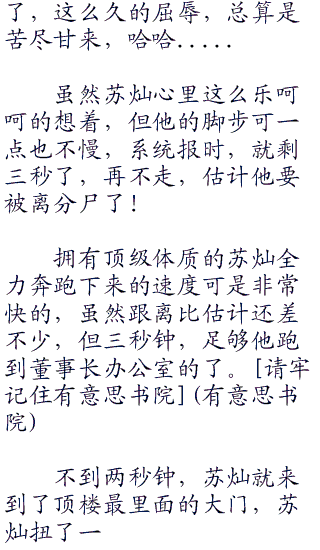 了，这么久的屈辱，总算是
苦尽甘来，哈哈.....
虽然苏灿心里这么乐呵
呵的想着，但他的脚步可一
点也不慢，系统报时，就剩
三秒了，再不走，估计他要
被离分尸了！
拥有顶级体质的苏灿全
力奔跑下来的速度可是非常
快的，虽然跟离比估计还差
不少，但三秒钟，足够他跑
到董事长办公室的了。[请牢
记住有意思书院](有意思书
院)
不到两秒钟，苏灿就来
到了顶楼最里面的大门，苏
灿扭了一